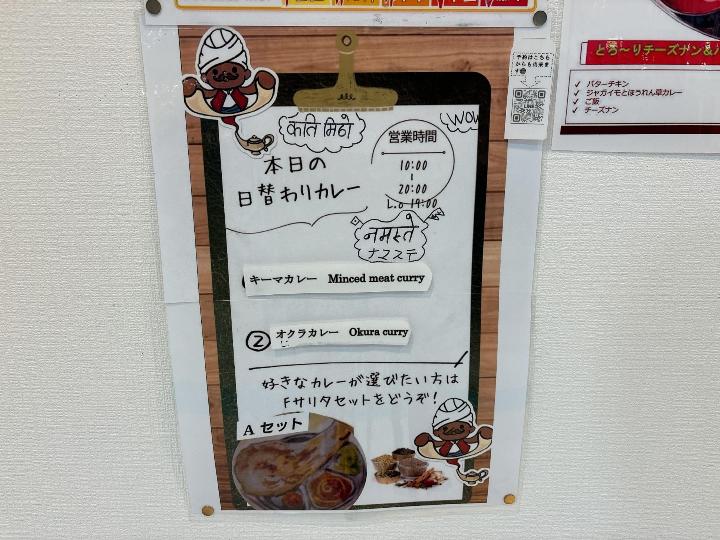 कति मिठो
WOW
営業時間
10:00
20:00
L.o 19:00
本日の
日替わりカレー
नमस्ते
ナマステ
キーマカレー Minced meat curry
② オクラカレー Okura curry
好きなカレーが選びたい方は
Fサリタセットをどうぞ!
A セット
予約はこちら
からも出来ます
とろ〜りチーズナン&
✓ バターチキン
✓ ジャガイモとほうれん草カレー
✓ ご飯
✓ チーズナン